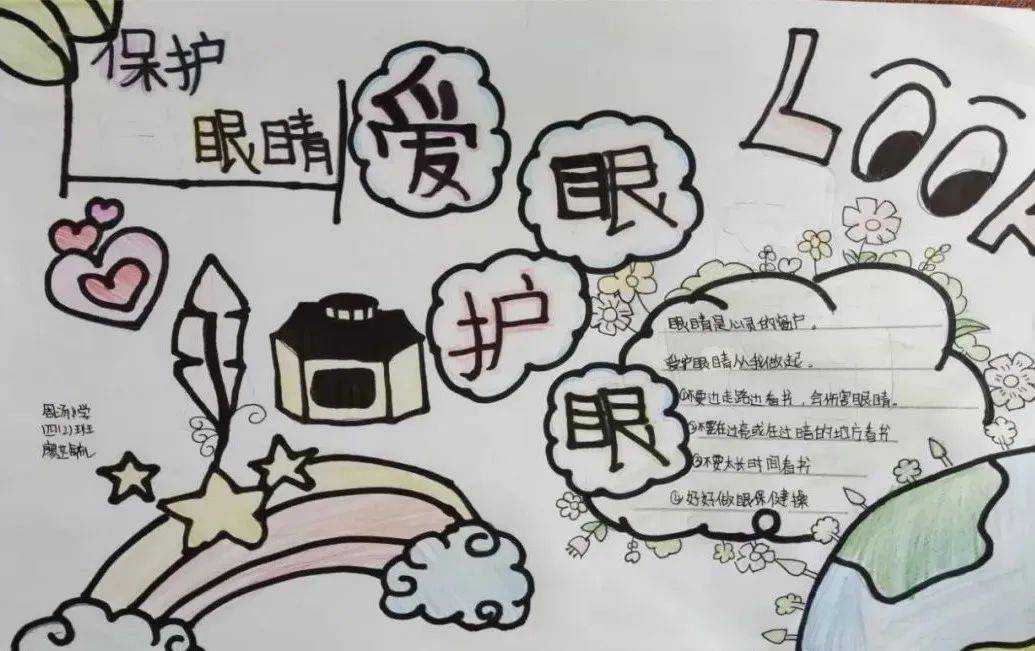 保护
眼睛
爱
眼
护
眼
LOOK
眼睛是心灵的窗户。
爱护眼睛从我做起。
①不要边走路边看书，会伤害眼睛。
②不要在过亮或在过暗的地方看书
③不要太长时间看书
④好好做眼保健操
小学
四(2)班